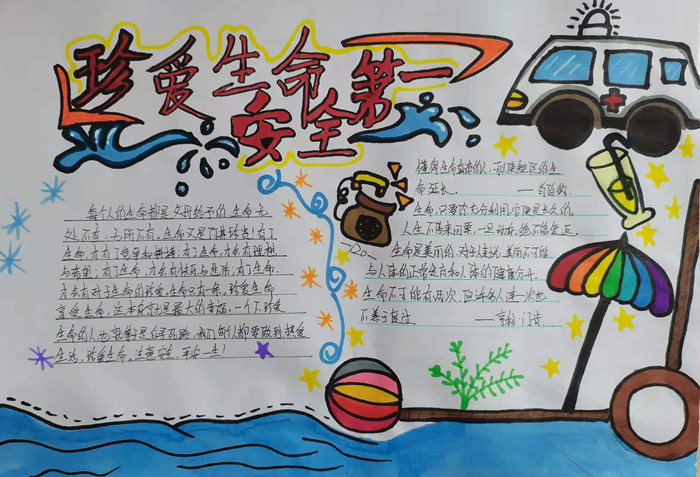 珍爱生命 第一
安全
每个人的生命都是父母给予的，生命无
处不在，无所不有。生命又是何其珍贵！有了
生命，才有了竞争和拼搏；有了生命，才会有理想
与希望；有了生命，才会有快乐与悲伤；有了生命，
才会有对于生命的珍爱。生命只有一条，珍爱生命，
享受生命，这本身就是最大的幸福。一个不珍爱
生命的人也就等于是自寻死路，我们每个人都要做到：热爱
生活，珍爱生命，注意安全，平安一生！
懂得生命真谛的人，可以使短促的生
命延长。——西塞罗
生命，只要你充分利用，它便是长久的。
人生不售来回票，一旦动身，绝不能复返。
120
生命是美丽的，对人来说，美丽不可能
与人体的正常发育和人体的健康分开。
生命不可能有两次，但许多人连一次也
不善于度过。——吕凯特